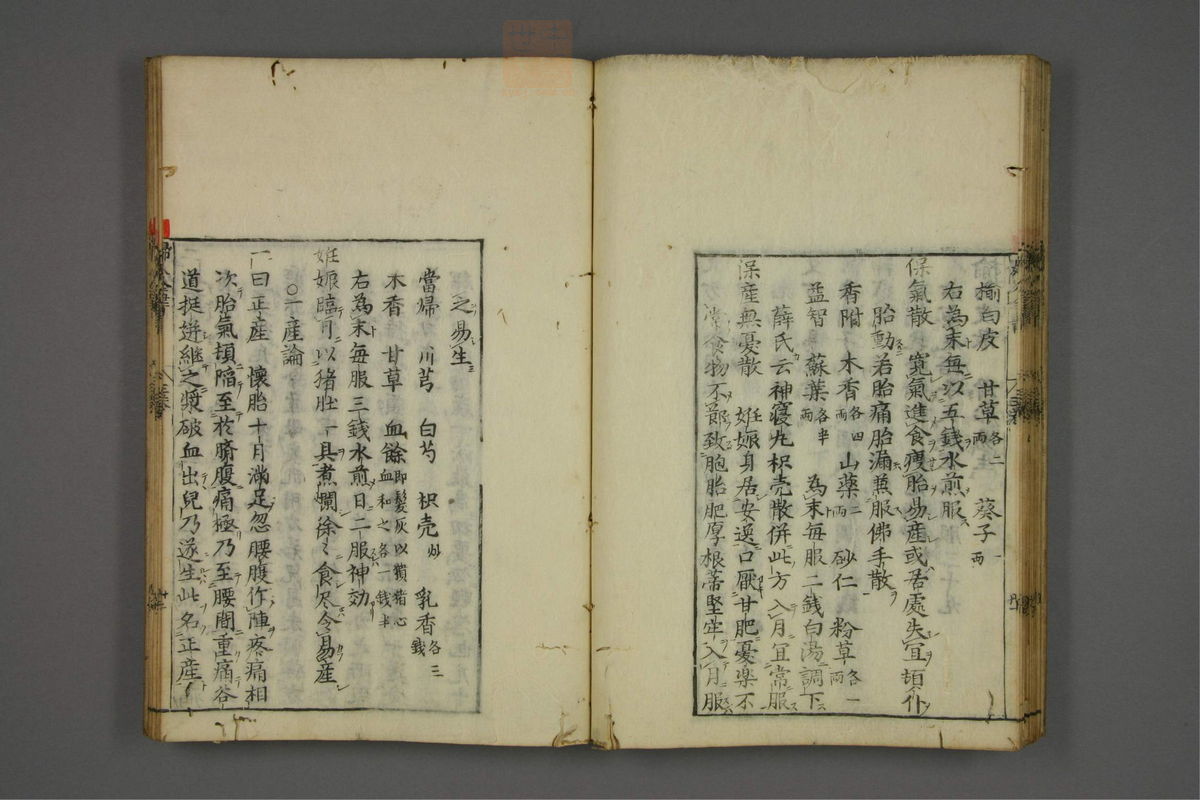 榆白皮 甘草各二両 葵子一両
右為末毎以五銭水煎服
保氣散 寛氣進食瘦胎易産或居處失宜頓仆
胎動若胎痛胎漏兼服佛手散
香附子 木香各四両 山薬二両 砂仁 粉草各一両
益智 蘇葉各半両 為末毎服二銭白湯調下
薛氏云神寝丸枳壳散併此方入月宜常服
保産無憂散 姙娠身居安逸口厭甘肥憂楽不
常食物不節致胞胎肥厚根蔕堅牢入月服
之易生
當帰 川芎 白芍 枳壳炒 乳香各三銭
木香 甘草 血餘即髪灰以豶猪心血和之各一銭半
右為末毎服三銭水煎日二服神効
姙娠臨月以猪肚一具煮爛徐〻食尽令易産
〇一産論
一曰正産 懐胎十月満足忽腰腹作陣疼痛相
次胎氣頓陥至於臍腹痛極乃至腰間重痛谷
道挺迸継之漿破血出兒乃遂生此名正産